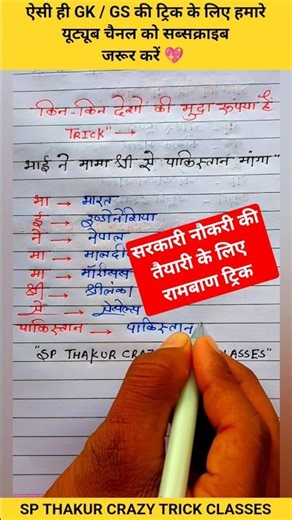 ऐसी ही GK / GS की ट्रिक के लिए हमारे
यूट्यूब चैनल को सब्सक्राइब
जरूर करें 💖
किन-किन देशों की मुद्रा रुपया है
TRICK" →
भाई ने मामा श्री से पाकिस्तान मांगा"
भा → भारत
ई → इण्डोनेशिया
ने → नेपाल
मा → मालदी
मा →
श्री → श्रीलंका
से →
पाकिस्तान → पाकिस्तान
सरकारी नौकरी की
तैयारी के लिए
रामबाण ट्रिक
"SP THAKUR CRA CLASSES"
SP THAKUR CRAZY TRICK CLASSES